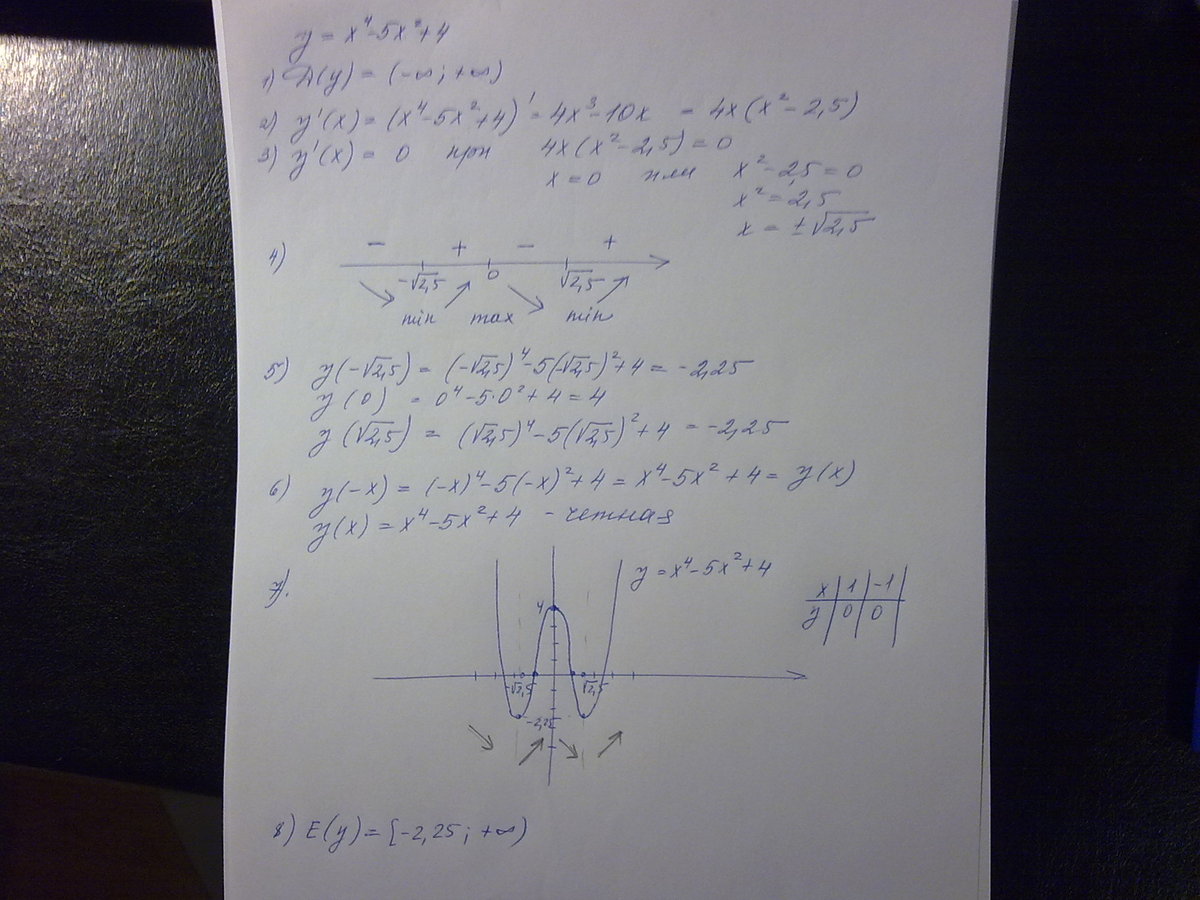 y = x⁴-5x²+4
1) D(y) = (-∞; +∞)
2) y'(x) = (x⁴-5x²+4)' = 4x³-10x = 4x(x²-2,5)
3) y'(x) = 0 при 4x(x²-2,5)=0
x=0 или x²-2,5=0
x²=2,5
x = ±√2,5
4) - + - +
-√2,5 0 √2,5
min max min
5) y(-√2,5) = (-√2,5)⁴-5(-√2,5)²+4 = -2,25
y(0) = 0⁴-5·0²+4=4
y(√2,5) = (√2,5)⁴-5(√2,5)²+4 = -2,25
6) y(-x) = (-x)⁴-5(-x)²+4 = x⁴-5x²+4 = y(x)
y(x) = x⁴-5x²+4 - четная
7).
y = x⁴-5x²+4
x 1 -1
y 0 0
4
-√2,5 √2,5
-2,25
8) E(y) = [-2,25; +∞)